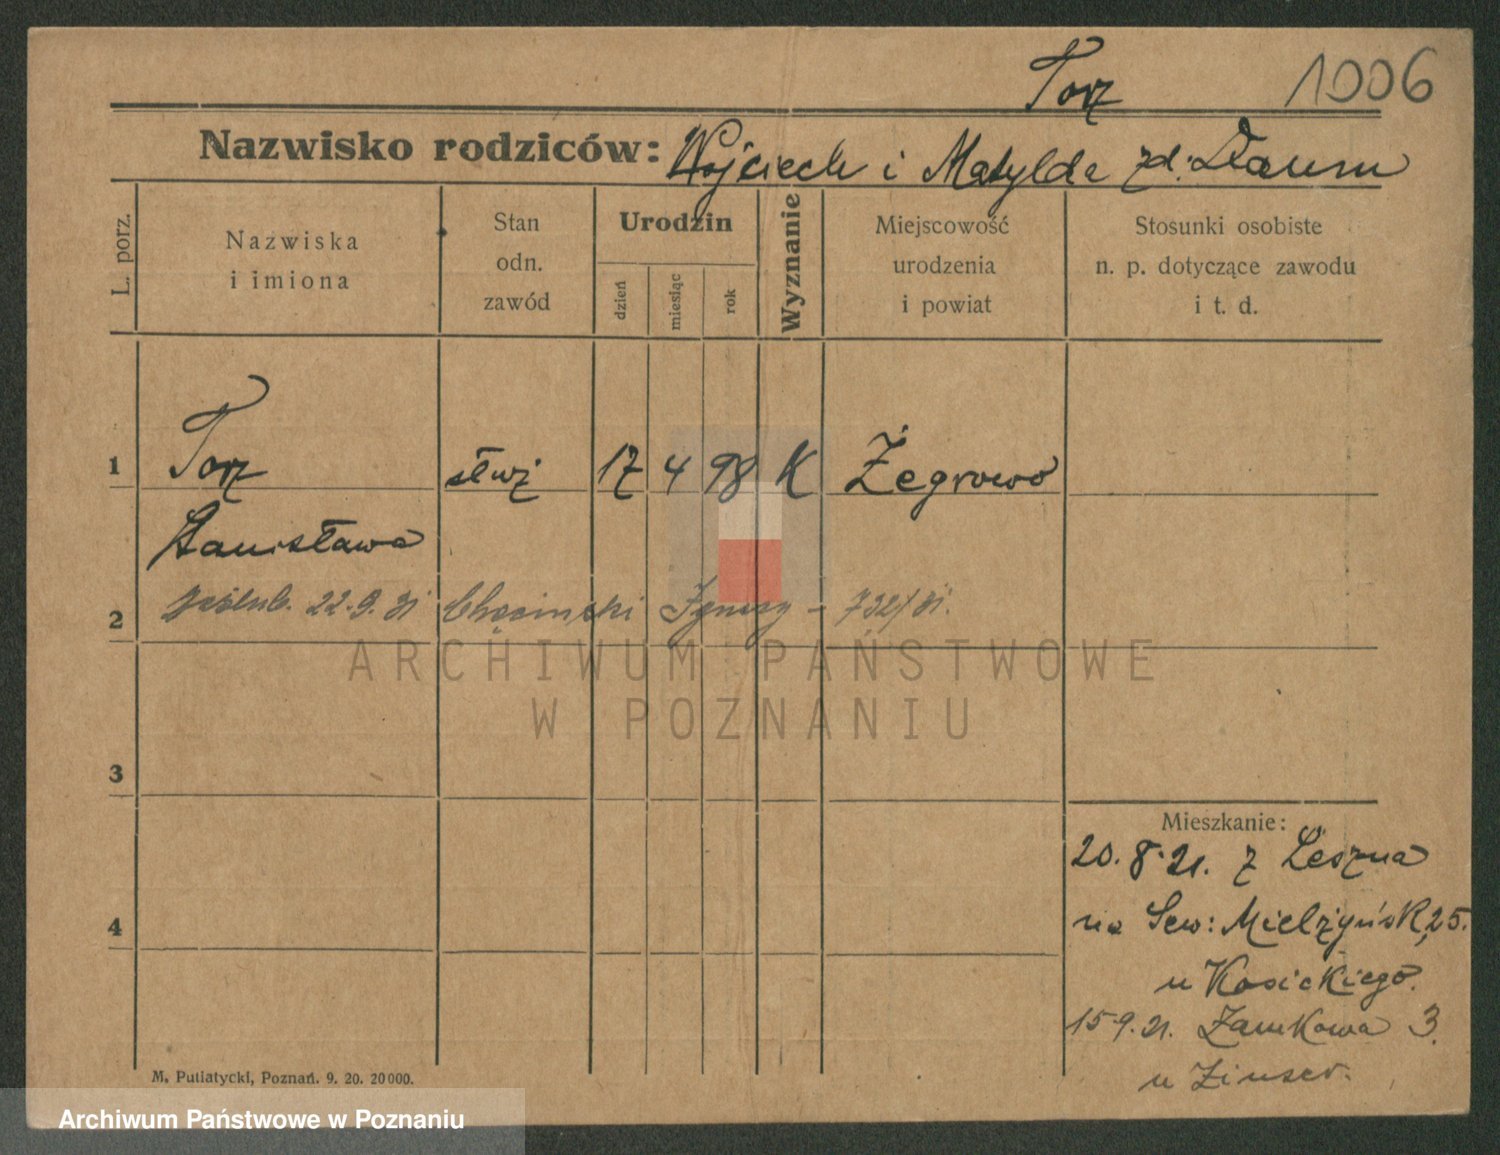 Torz 1006
Nazwisko rodziców: Wojciech i Matylda zd. Daum
L. porz.
Nazwiska
i imiona
Stan
odn.
zawód
Urodzin
dzień
miesiąc
rok
Wyznanie
Miejscowość
urodzenia
i powiat
Stosunki osobiste
n. p. dotyczące zawodu
i t. d.
1 Torz służ 17 4 98 K Żegrowo
Stanisława
2 zaślub. 22.9.31 Chęciński Ignacy - 732/31.
ARCHIWUM PAŃSTWOWE
W POZNANIU
3
Mieszkanie:
20.8.21. z Leszna
4
na Sew: Mielżyńsk, 25.
u Kosickiego.
15.9.21. Zamkowa 3.
u
M. Putiatycki, Poznań. 9. 20. 20000.
Archiwum Państwowe w Poznaniu